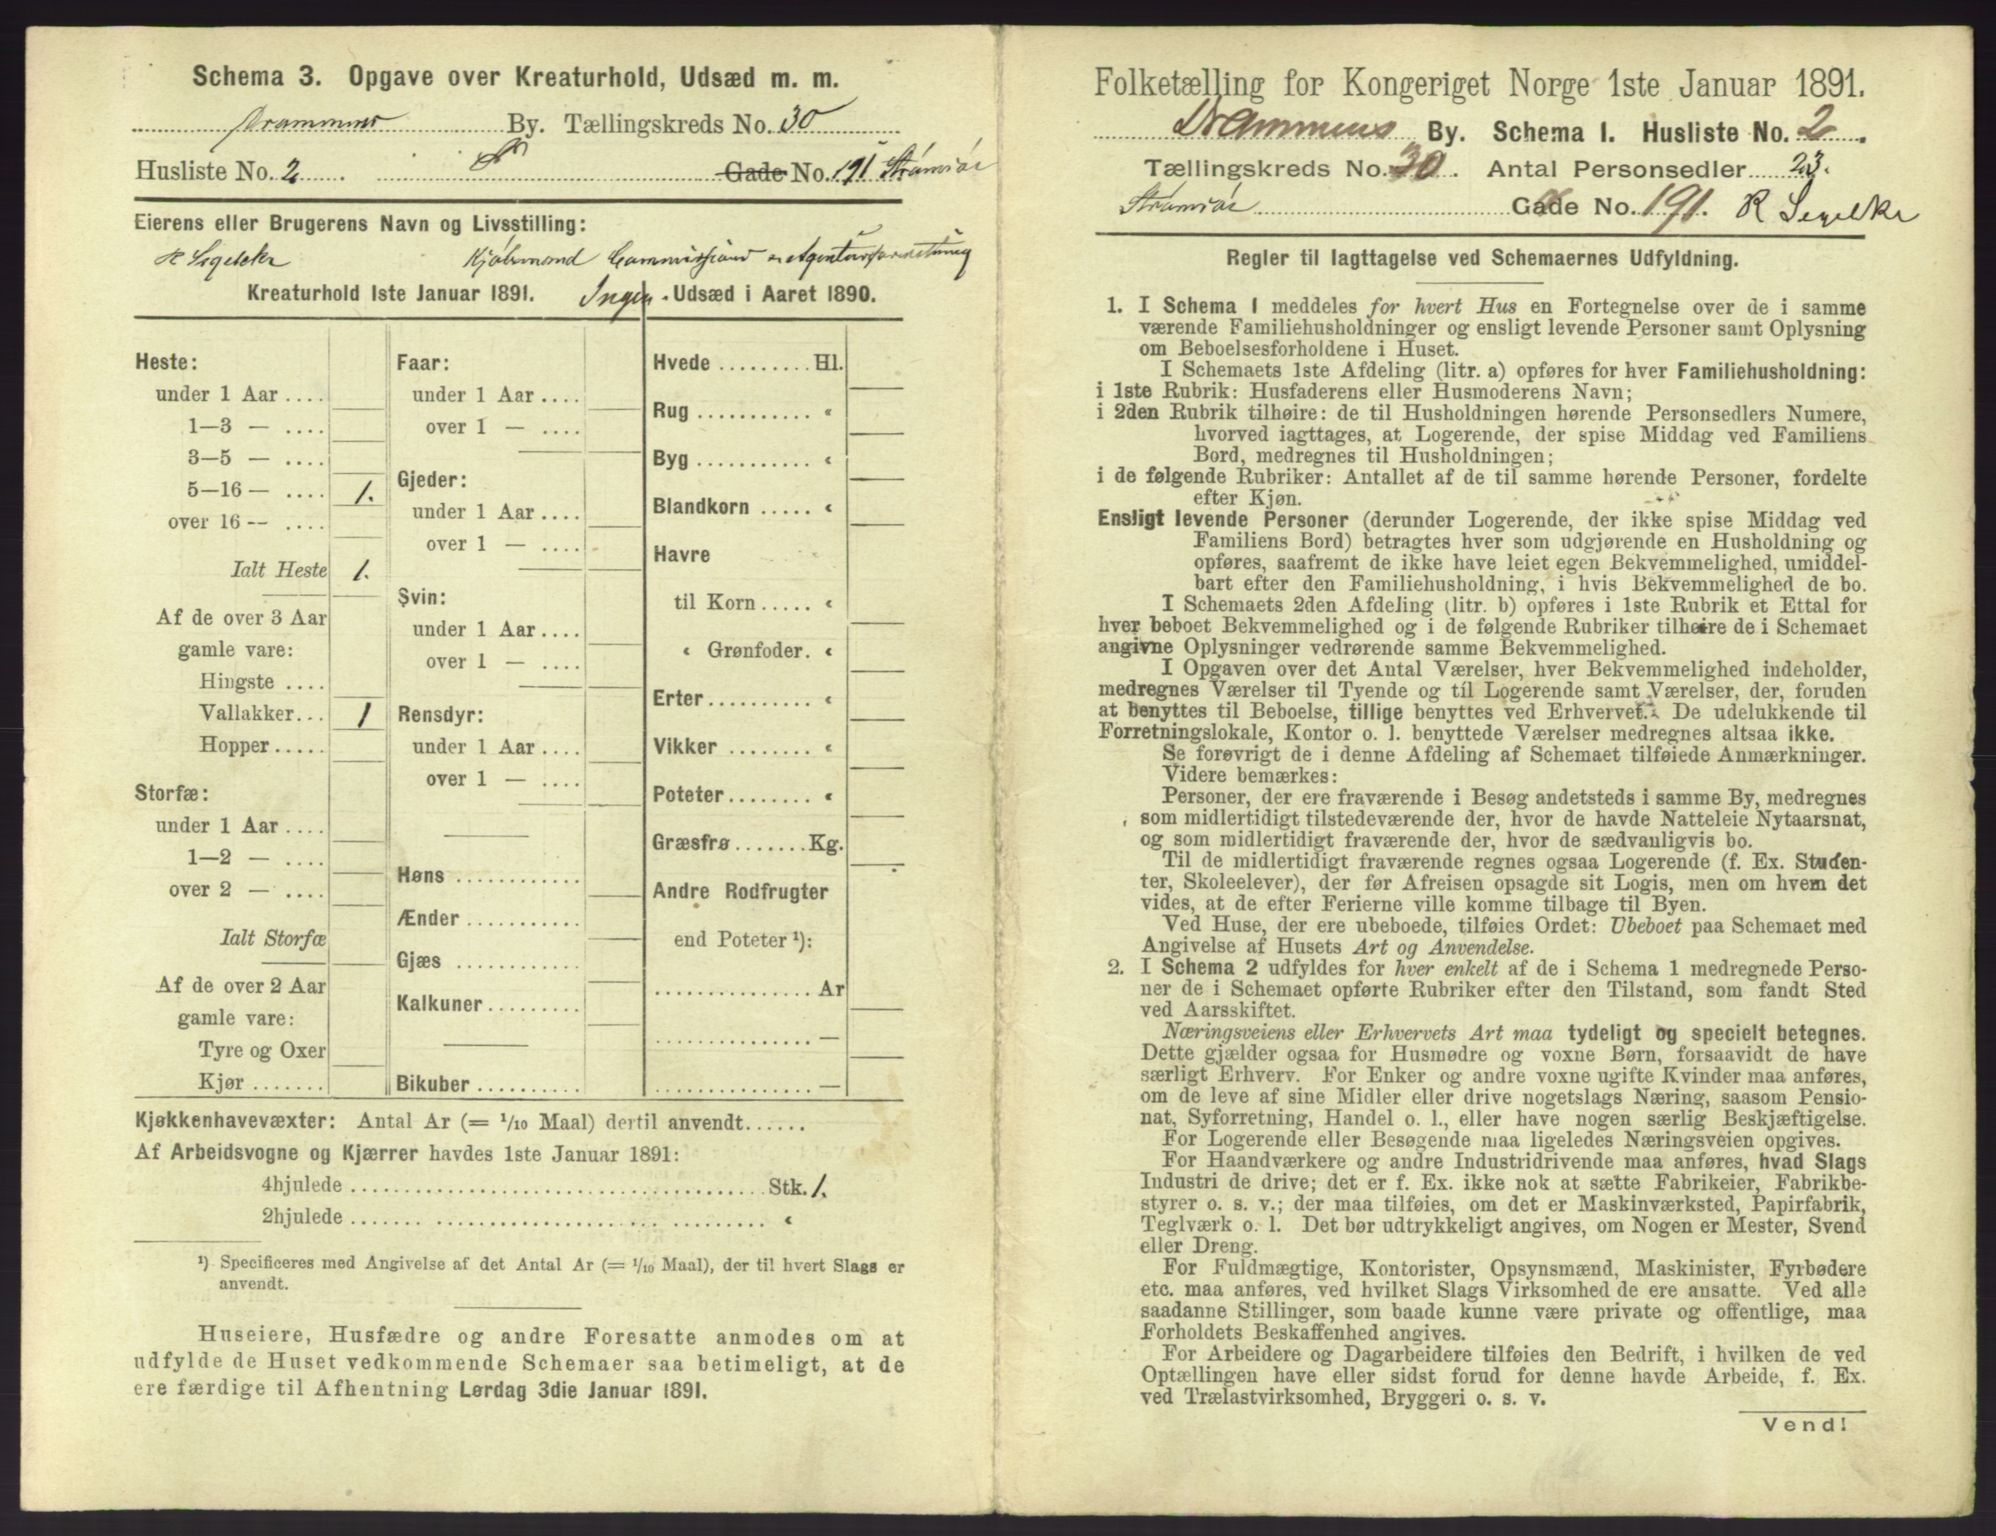 Schema 3. Opgave over Kreaturhold, Udsæd m. m.
Drammens By. Tællingskreds No. 30
Husliste No. 2 Gade No. 191 Strømsø
Eierens eller Brugerens Navn og Livsstilling:
R Segelcke Kjøbmand Commissions & Agenturforretning
Kreaturhold 1ste Januar 1891. Ingen Udsæd i Aaret 1890.
Heste:
under 1 Aar ....
1—3 — ....
3—5 — ....
5—16 — .... 1.
over 16 -- ....
Ialt Heste 1.
Af de over 3 Aar
gamle vare:
Hingste ....
Vallakker... 1
Hopper.....
Storfæ:
under 1 Aar ....
1—2 — ....
over 2 — ....
Ialt Storfæ
Af de over 2 Aar
gamle vare:
Tyre og Oxer
Kjør .......
Faar:
under 1 Aar ....
over 1 — ....
Gjeder:
under 1 Aar ....
over 1 — ....
Svin:
under 1 Aar ....
over 1 — ....
Rensdyr:
under 1 Aar ....
over 1 — ....
Høns ............
Ænder ...........
Gjæs ............
Kalkuner.........
Bikuber ..........
Hvede ......... Hl.
Rug ........... «
Byg ........... «
Blandkorn ..... «
Havre
til Korn..... «
« Grønfoder. «
Erter.......... «
Vikker ........ «
Poteter........ «
Græsfrø.......Kg.
Andre Rodfrugter
end Poteter ¹):
............... Ar
............... —
............... —
Kjøkkenhavevæxter: Antal Ar (= 1/10 Maal) dertil anvendt......
Af Arbeidsvogne og Kjærrer havdes 1ste Januar 1891:
4hjulede ........................................ Stk. 1.
2hjulede ........................................ «
¹) Specificeres med Angivelse af det Antal Ar (= 1/10 Maal), der til hvert Slags er
anvendt.
Huseiere, Husfædre og andre Foresatte anmodes om at
udfylde de Huset vedkommende Schemaer saa betimeligt, at de
ere færdige til Afhentning Lørdag 3die Januar 1891.
Folketælling for Kongeriget Norge 1ste Januar 1891.
Drammens By. Schema 1. Husliste No. 2.
Tællingskreds No. 30. Antal Personsedler 23.
Strømsø Gade No. 191. R Segelke
Regler til Iagttagelse ved Schemaernes Udfyldning.
1. I Schema 1 meddeles for hvert Hus en Fortegnelse over de i samme
værende Familiehusholdninger og ensligt levende Personer samt Oplysning
om Beboelsesforholdene i Huset.
I Schemaets 1ste Afdeling (litr. a) opføres for hver Familiehusholdning:
i 1ste Rubrik: Husfaderens eller Husmoderens Navn;
i 2den Rubrik tilhøire: de til Husholdningen hørende Personsedlers Numere,
hvorved iagttages, at Logerende, der spise Middag ved Familiens
Bord, medregnes til Husholdningen;
i de følgende Rubriker: Antallet af de til samme hørende Personer, fordelte
efter Kjøn.
Ensligt levende Personer (derunder Logerende, der ikke spise Middag ved
Familiens Bord) betragtes hver som udgjørende en Husholdning og
opføres, saafremt de ikke have leiet egen Bekvemmelighed, umiddel-
bart efter den Familiehusholdning, i hvis Bekvemmelighed de bo.
I Schemaets 2den Afdeling (litr. b) opføres i 1ste Rubrik et Ettal for
hver beboet Bekvemmelighed og i de følgende Rubriker tilhøire de i Schemaet
angivne Oplysninger vedrørende samme Bekvemmelighed.
I Opgaven over det Antal Værelser, hver Bekvemmelighed indeholder,
medregnes Værelser til Tyende og til Logerende samt Værelser, der, foruden
at benyttes til Beboelse, tillige benyttes ved Erhvervet. De udelukkende til
Forretningslokale, Kontor o. l. benyttede Værelser medregnes altsaa ikke.
Se forøvrigt de i denne Afdeling af Schemaet tilføiede Anmærkninger.
Videre bemærkes:
Personer, der ere fraværende i Besøg andetsteds i samme By, medregnes
som midlertidigt tilstedeværende der, hvor de havde Natteleie Nytaarsnat,
og som midlertidigt fraværende der, hvor de sædvanligvis bo.
Til de midlertidigt fraværende regnes ogsaa Logerende (f. Ex. Studen-
ter, Skoleelever), der før Afreisen opsagde sit Logis, men om hvem det
vides, at de efter Ferierne ville komme tilbage til Byen.
Ved Huse, der ere ubeboede, tilføies Ordet: Ubeboet paa Schemaet med
Angivelse af Husets Art og Anvendelse.
2. I Schema 2 udfyldes for hver enkelt af de i Schema 1 medregnede Perso-
ner de i Schemaet opførte Rubriker efter den Tilstand, som fandt Sted
ved Aarsskiftet.
Næringsveiens eller Erhvervets Art maa tydeligt og specielt betegnes.
Dette gjælder ogsaa for Husmødre og voxne Børn, forsaavidt de have
særligt Erhverv. For Enker og andre voxne ugifte Kvinder maa anføres,
om de leve af sine Midler eller drive nogetslags Næring, saasom Pensio-
nat, Syforretning, Handel o. l., eller have nogen særlig Beskjæftigelse.
For Logerende eller Besøgende maa ligeledes Næringsveien opgives.
For Haandværkere og andre Industridrivende maa anføres, hvad Slags
Industri de drive; det er f. Ex. ikke nok at sætte Fabrikeier, Fabrikbe-
styrer o. s. v.; der maa tilføies, om det er Maskinværksted, Papirfabrik,
Teglværk o. l. Det bør udtrykkeligt angives, om Nogen er Mester, Svend
eller Dreng.
For Fuldmægtige, Kontorister, Opsynsmænd, Maskinister, Fyrbødere
etc. maa anføres, ved hvilket Slags Virksomhed de ere ansatte. Ved alle
saadanne Stillinger, som baade kunne være private og offentlige, maa
Forholdets Beskaffenhed angives.
For Arbeidere og Dagarbeidere tilføies den Bedrift, i hvilken de ved
Optællingen have eller sidst forud for denne havde Arbeide, f. Ex.
ved Trælastvirksomhed, Bryggeri o. s. v.
Vend!